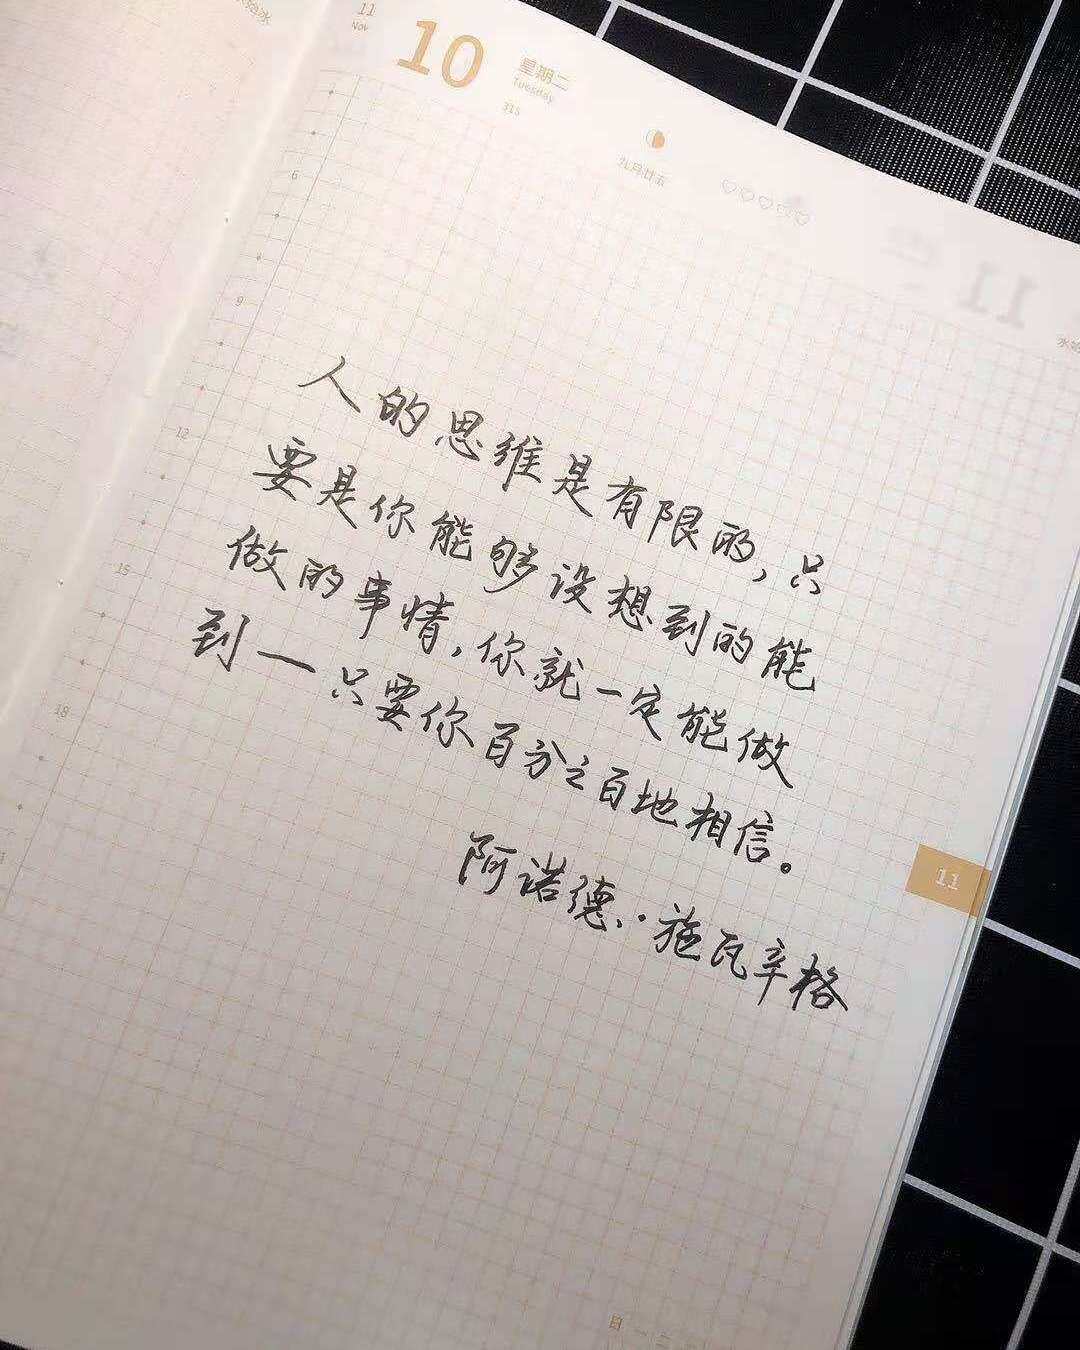 11
Nov
10
星期二
Tuesday
315
九月廿五
6
9
12
15
18
人的思维是有限的，只
要是你能够设想到的能
做的事情，你就一定能做
到一只要你百分之百地相信。
阿诺德·施瓦辛格
11
日 一 二